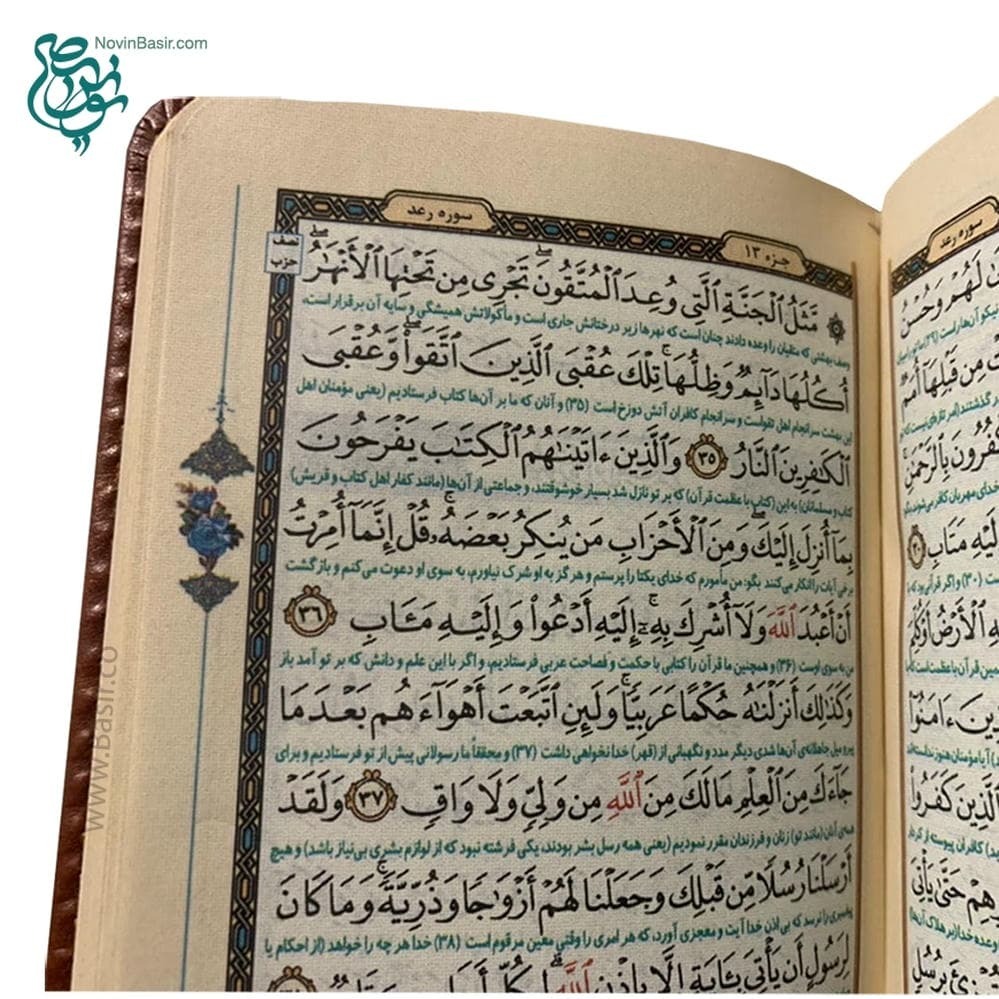 NovinBasir.com
سوره رعد
جزء ۱۳
نصف
حزب
مَّثَلُ ٱلْجَنَّةِ ٱلَّتِي وُعِدَ ٱلْمُتَّقُونَۖ تَجْرِي مِن تَحْتِهَا ٱلْأَنْهَٰرُۖ
وصف بهشتی که متقیان را وعده دادند چنان است که نهرها زیر درختانش جاری است و مأکولاتش همیشگی و سایه آن برقرار است،
أُكُلُهَا دَآئِمٌ وَظِلُّهَاۚ تِلْكَ عُقْبَى ٱلَّذِينَ ٱتَّقَوا۟ۖ وَّعُقْبَى
این بهشت سرانجام اهل تقواست و سرانجام کافران آتش دوزخ است (۳۵) و آنان که ما بر آن‌ها کتاب فرستادیم (یعنی مؤمنان اهل
ٱلْكَٰفِرِينَ ٱلنَّارُ ۳۵ وَٱلَّذِينَ ءَاتَيْنَٰهُمُ ٱلْكِتَٰبَ يَفْرَحُونَ
کتاب و مسلمانان) به این (کتاب با عظمت قرآن) که بر تو نازل شد بسیار خوشوقتند، و جماعتی از آن‌ها (مانند کفار اهل کتاب و قریش)
بِمَآ أُنزِلَ إِلَيْكَۖ وَمِنَ ٱلْأَحْزَابِ مَن يُنكِرُ بَعْضَهُۥۚ قُلْ إِنَّمَآ أُمِرْتُ
برخی آیات را انکار می‌کنند بگو: من مأمورم که خدای یکتا را پرستم و هرگز به او شرک نیاورم، به سوی او دعوت می‌کنم و بازگشت
أَنْ أَعْبُدَ ٱللَّهَ وَلَآ أُشْرِكَ بِهِۦٓۚ إِلَيْهِ أَدْعُوا۟ وَإِلَيْهِ مَـَٔابِ ۳۶
من به سوی اوست (۳۶) و همچنین ما قرآن را کتابی با حکمت و فصاحت عربی فرستادیم، و اگر با این علم و دانش که بر تو آمد باز
وَكَذَٰلِكَ أَنزَلْنَٰهُ حُكْمًا عَرَبِيًّاۚ وَلَئِنِ ٱتَّبَعْتَ أَهْوَآءَهُم بَعْدَ مَا
پیرو میل جاهلانه‌ی آن‌ها شدی دیگر مدد و نگهبانی از (قهر) خدا نخواهی داشت (۳۷) و محققاً ما رسولانی پیش از تو فرستادیم و برای
جَآءَكَ مِنَ ٱلْعِلْمِ مَا لَكَ مِنَ ٱللَّهِ مِن وَلِيٍّ وَلَا وَاقٍ ۳۷ وَلَقَدْ
همه‌ی آنان (مانند تو) زنان و فرزندان مقرر نمودیم (یعنی همه رسل بشر بودند، یکی فرشته نبود که از لوازم بشری بی‌نیاز باشد) و هیچ
أَرْسَلْنَا رُسُلًا مِّن قَبْلِكَ وَجَعَلْنَا لَهُمْ أَزْوَٰجًا وَذُرِّيَّةًۚ وَمَا كَانَ
پیامبری را نرسد که بی‌اذن خدا آیت و معجزی آورد، که هر امری را وقتی معین مرقوم است (۳۸) خدا هر چه را خواهد (از احکام یا
لِرَسُولٍ أَن يَأْتِيَ بِـَٔايَةٍ إِلَّا بِإِذْنِ ٱللَّهِۗ لِكُلِّ
سوره رعد
لَهُمْ وَحُسْنُ
مِن قَبْلِهَآ أُمَمٌ
بِٱلرَّحْمَٰنِ
إِلَيْهِ مَتَابِ
ٱلْأَرْضُ أَوْ كُلِّمَ
ءَامَنُوٓا۟
ٱلَّذِينَ كَفَرُوا۟
حَتَّىٰ يَأْتِيَ
بِرُسُلٍ
www.Basir.co